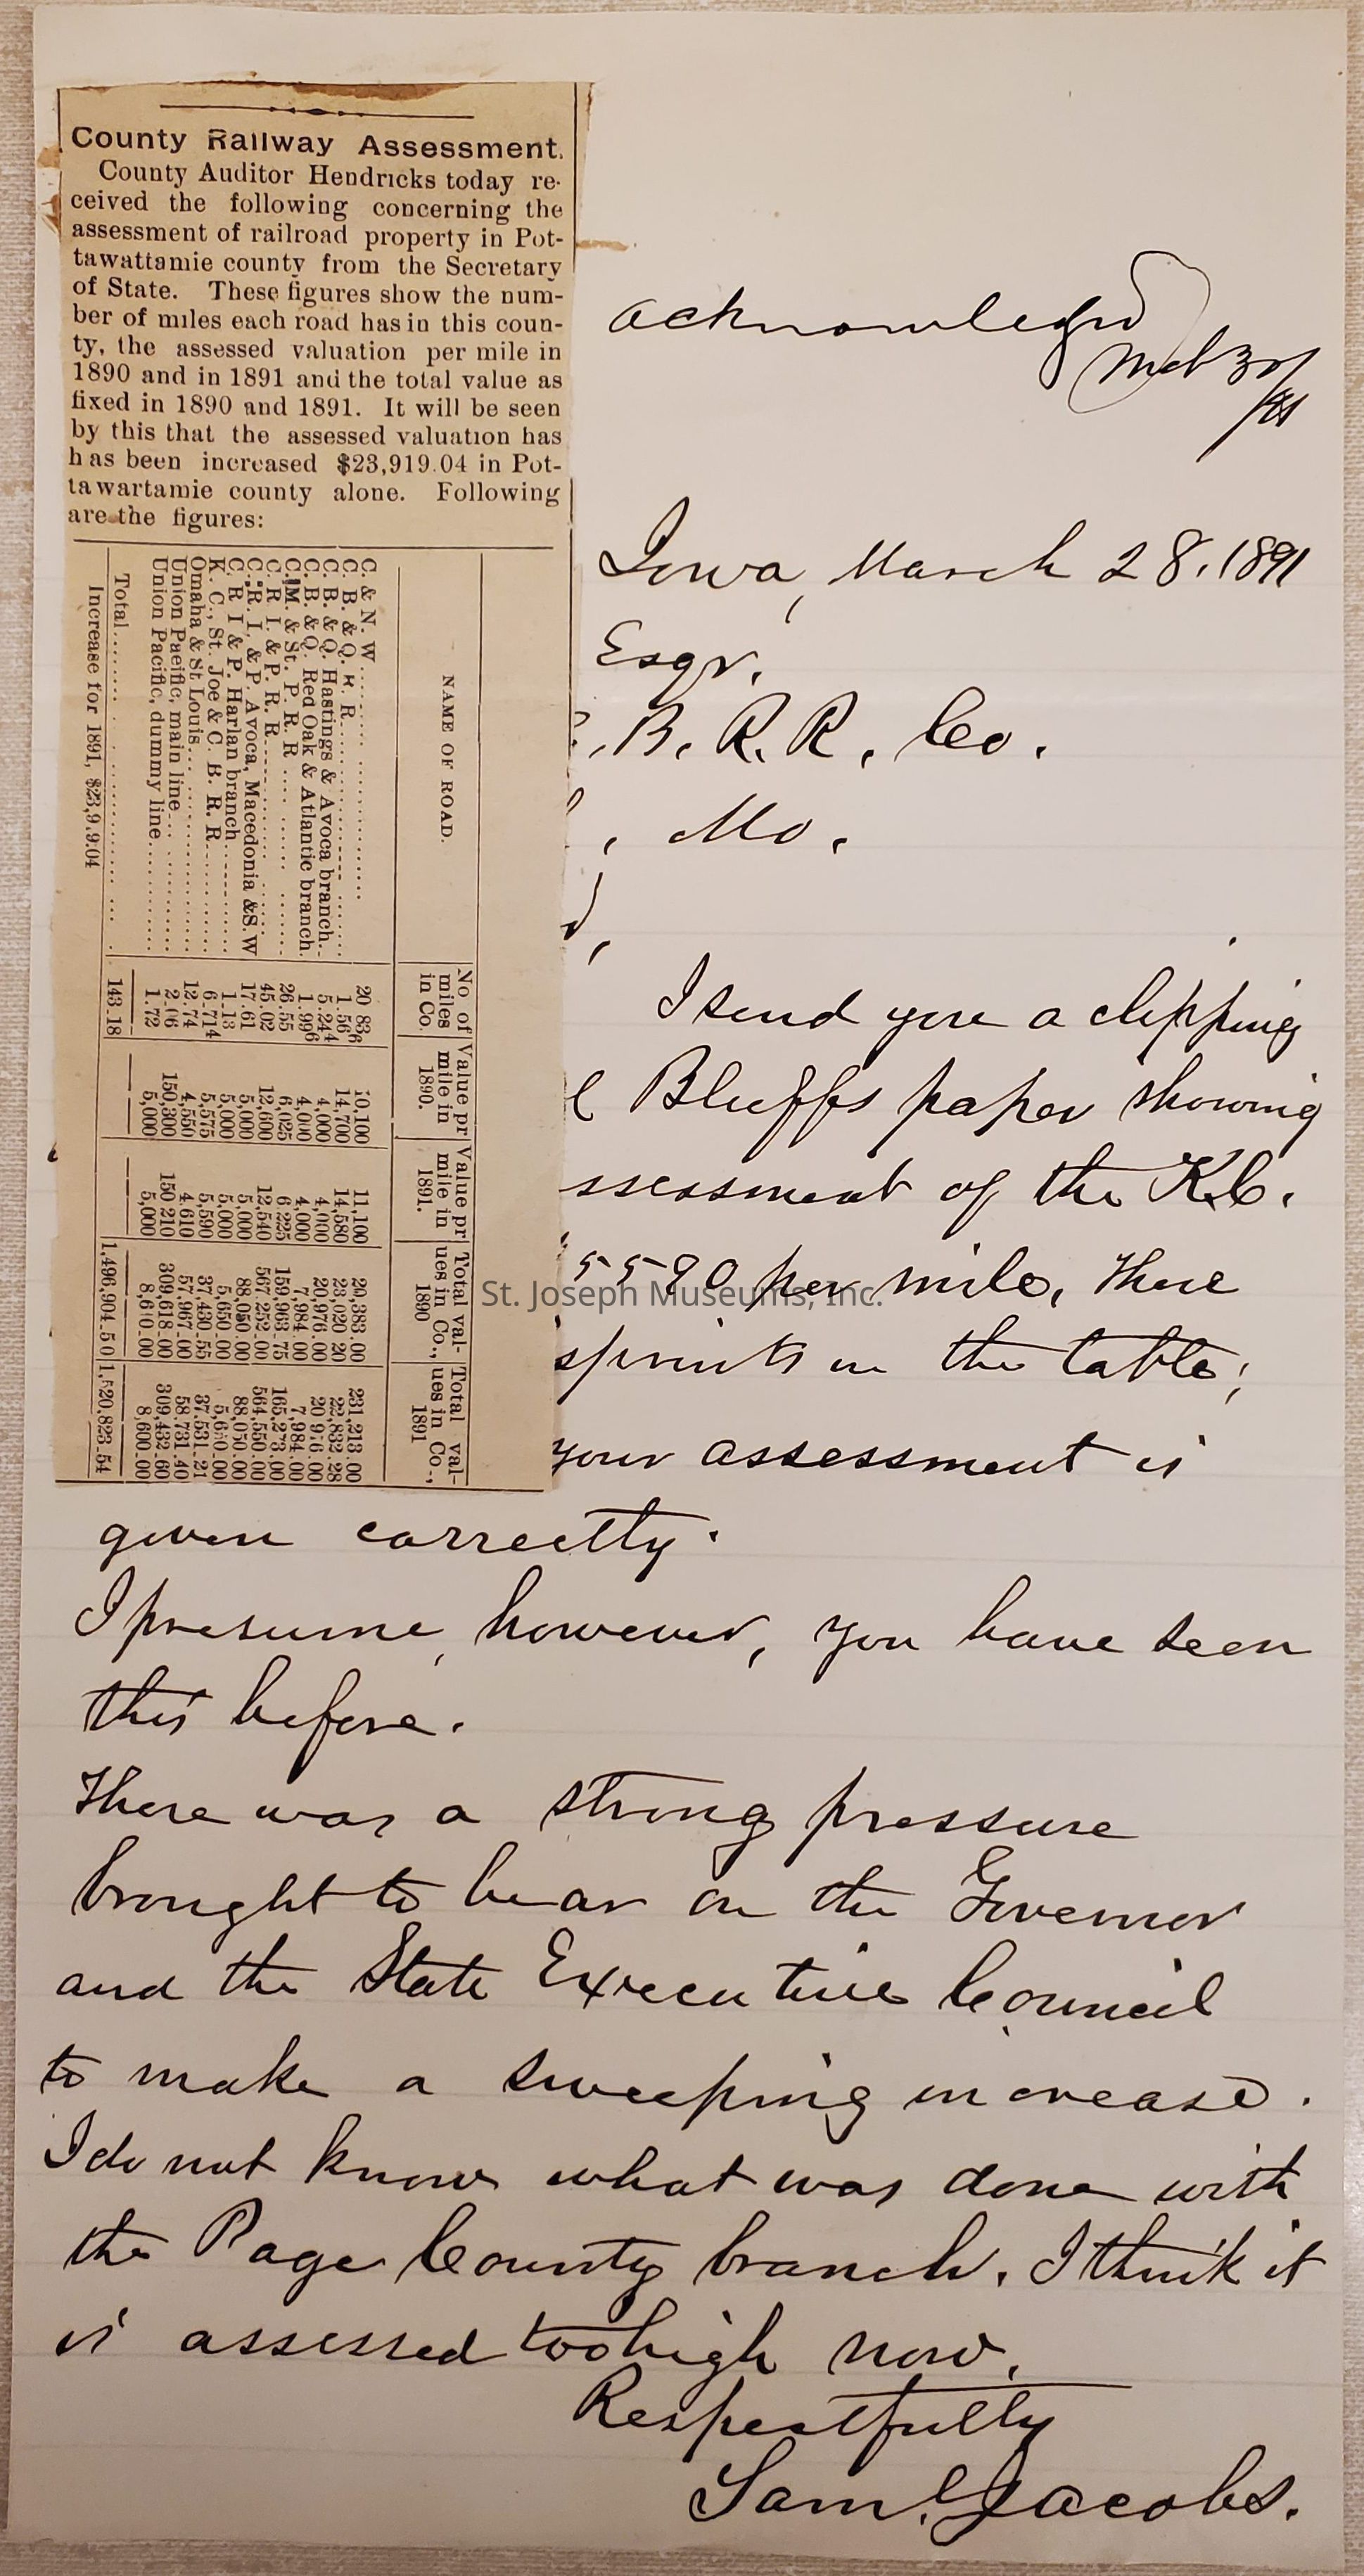 County Railway Assessment.
County Auditor Hendricks today re-
ceived the following concerning the
assessment of railroad property in Pot-
tawattamie county from the Secretary
of State. These figures show the num-
ber of miles each road has in this coun-
ty, the assessed valuation per mile in
1890 and in 1891 and the total value as
fixed in 1890 and 1891. It will be seen
by this that the assessed valuation has
has been increased $23,919.04 in Pot-
tawartamie county alone. Following
are the figures:
NAME OF ROAD. No of miles in Co. Value pr mile in 1890. Value pr mile in 1891. Total val-ues in Co., 1890 Total val-ues in Co., 1891
C. & N. W. 20 836 10,100 11,100 231,213 00
C. B. & Q. R. R. 1.566 14,700 14,580 23,020 20 22,832.28
C. B. & Q. Hastings & Avoca branch 5.244 4,000 4,000 20,976 00
C. B. & Q. Red Oak & Atlantic branch. 1.996 4,000 4,000 7,984 00 7,984.00
C. M. & St. P. R. R 26.55 6,025 6 225 159,963 75 165,273.00
C. R. I. & P. R. R. 45.02 12,600 12,540 567,252 00 564,550.00
C. R. I. & P. Avoca, Macedonia & S. W 17.61 5,000 5,000 88,050 00 88,050 00
C. R I & P. Harlan branch 1-13 5,000 5,000 5,650 00
K. C., St. Joe & C. B. R. R 6.714 5,575 5,590 37,430.55 37,531.21
Omaha & St Louis 12.74 4,550 4 610 57,967 00 58.731.40
Union Pacific, main line 2.06 150,300 150 210 309,618.00 309,432.60
Union Pacific, dummy line 1.72 5,000 5,000 8,610.00 8,600.00
Total 143.18 1,496,904.50 1,520,823.54
Increase for 1891, $23,9.9.04
acknowledgd
Mch 30/91
Iowa, March 28. 1891
Esqr.
B. R. R. Co.
, Mo.
d,
I send you a clipping
l Bluffs paper showing
ssessment of the K.C.
5590 per mile. There
sprints in the table;
your assessment is
given correctly.
I presume, however, you have seen
this before.
There was a strong pressure
brought to bear on the Governor
and the State Executive Council
to make a sweeping increase.
I do not know what was done with
the Page County branch. I think it
is assessed too high now.
Respectfully
Saml. Jacobs.
St. Joseph Museums, Inc.